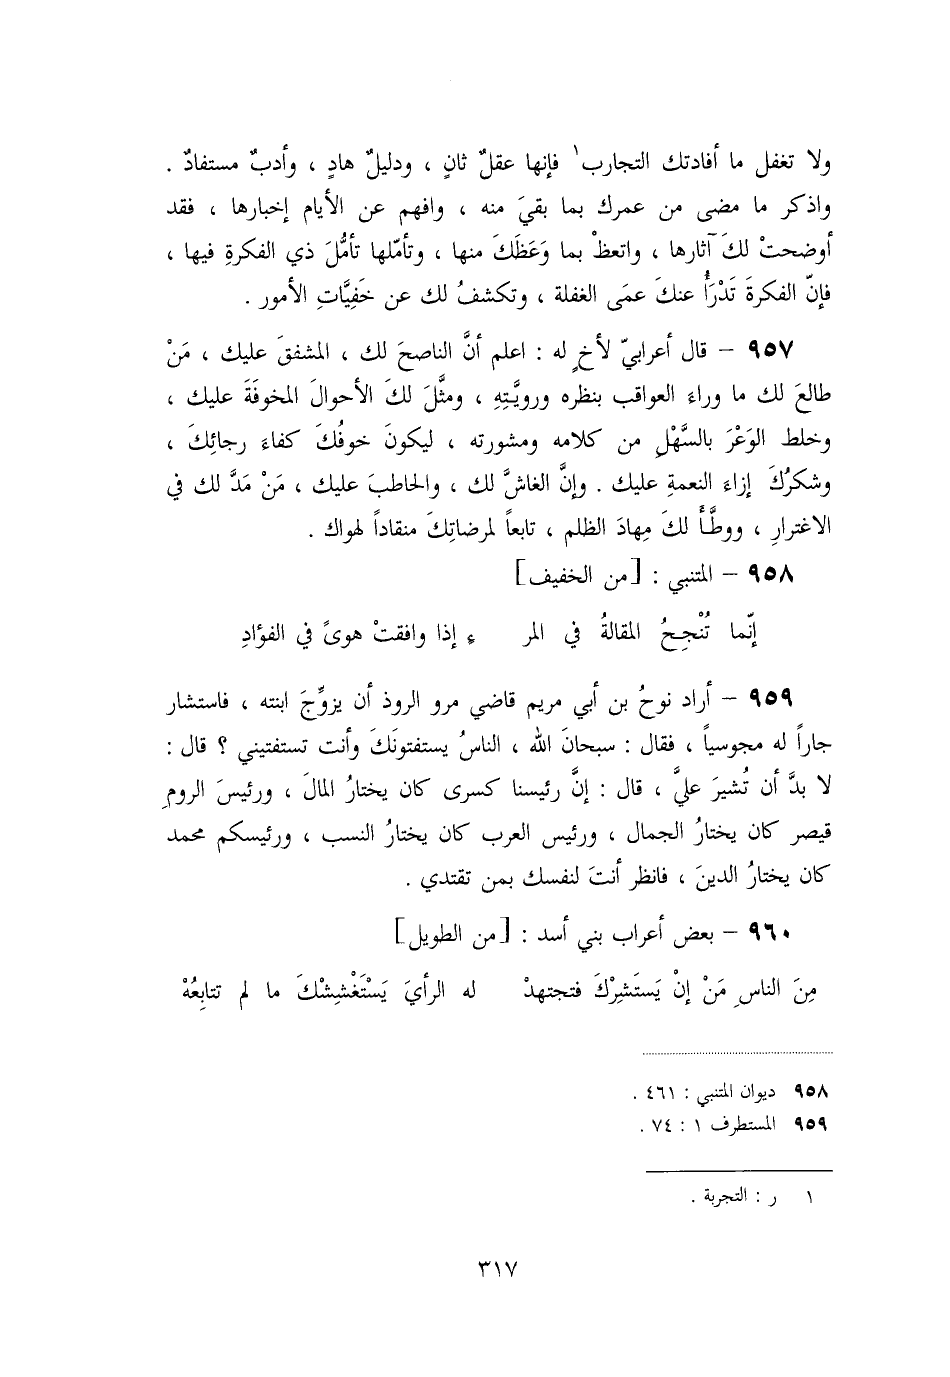 ولا تغفل ما أفادتك التجارب١ فإنها عقلٌ ثانٍ ، ودليلٌ هادٍ ، وأدبٌ مستفادٌ .
واذكر ما مضى من عمرك بما بقيَ منه ، وافهم عن الأيام إخبارها ، فقد
أوضحتْ لكَ آثارها ، واتعظْ بما وَعَظَكَ منها ، وتأمّلها تأمُّلَ ذي الفكرةِ فيها ،
فإنّ الفكرةَ تَدْرَأُ عنكَ عمَى الغفلة ، وتكشفُ لك عن خَفِيَّاتِ الأمور .
٩٥٧ – قال أعرابيّ لأخٍ له : اعلم أنَّ الناصحَ لك ، المشفقَ عليك ، مَنْ
طالعَ لك ما وراء العواقب بنظره ورويَّتِهِ ، ومثَّلَ لكَ الأحوالَ المخوفَةَ عليك ،
وخلط الوَعْرَ بالسَّهْلِ من كلامه ومشورته ، ليكونَ خوفُكَ كفاءَ رجائِكَ ،
وشكرُكَ إزاءَ النعمةِ عليك . وإنَّ الغاشَّ لك ، والحاطبَ عليك ، مَنْ مَدَّ لك في
الاغترارِ ، ووطَّأَ لكَ مِهادَ الظلم ، تابعاً لمرضاتِكَ منقاداً لهواك .
٩٥٨ – المتنبي : [من الخفيف]
إنّما تُنْجِحُ المقالةُ في المر ءِ إذا وافقتْ هوىً في الفؤادِ
٩٥٩ – أراد نوحُ بن أبي مريم قاضي مرو الروذ أن يزوِّجَ ابنته ، فاستشار
جاراً له مجوسياً ، فقال : سبحانَ الله ، الناسُ يستفتونَكَ وأنت تستفتيني ؟ قال :
لا بدَّ أن تُشيرَ عليَّ ، قال : إنَّ رئيسنا كسرى كان يختارُ المالَ ، ورئيسَ الرومِ
قيصر كان يختارُ الجمال ، ورئيس العرب كان يختارُ النسب ، ورئيسكم محمد
كان يختارُ الدينَ ، فانظر أنتَ لنفسك بمن تقتدي .
٩٦٠ – بعض أعراب بني أسد : [من الطويل]
مِنَ الناسِ مَنْ إنْ يَستَشِرْكَ فتجتهدْ له الرأيَ يَسْتَغْشِشْكَ ما لم تتابِعُهْ
٩٥٨ ديوان المتنبي : ٤٦١ .
٩٥٩ المستطرف ١ : ٧٤ .
١ ر : التجربة .
٣١٧